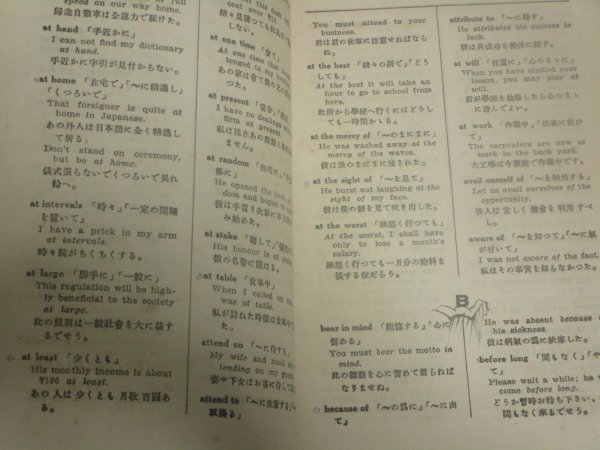 speed on our way home.
歸途自動車は全速力で駛けた。
at hand 「手近かに」
I can not find my dictionary
at hand.
手近かに字引が見付からない。
at home 「在宅で」「〜に精通し」
「くつろいで」
That foreigner is quite at
home in Japanese.
あの外人は日本語に全く精通し
て居る。
Don't stand on ceremony,
but be at home.
儀式張らないでくつろいで呉れ
給へ。
at intervals 「時々」「一定の間隔
を置いて」
I have a prick in my arm
at intervals.
時々腕がちくちくする。
at large 「勝手に」「一般に」
This regulation will be high-
ly beneficial to the society
at large.
此の規則は一般社會を大に益す
るでせう。
at least 「少くとも」
His monthly income is about
¥100 at least.
あの人は少くとも月收百圓あ
る。
cost over
at one time 「曾て」
At one time that
longed to my
あの家は曾て僕の
つた。
at present 「當分」
I have no dealings
firm at present.
私は現在あの商館と
ません。
at random
He opened the
dom and began to
み始めた。
at stake
His honour is at stake.
彼の名譽に關はる。
at table 「食事中」
When I called on
was at table.
私が訪ねた時彼は食事
た。
attend on 「〜に侍する」
My wife and maid
tending on my
妻や下女はお客に侍して
attend to 「〜に注意する」
取掛る」
You must attend to your
business.
君は君の仕事に注意せねばなら
ぬ。
at the best 「精々の所で」「どう
しても」
At the best it will take an
hour to go to school from
here.
此所から學校へ行くにはどうし
ても一時間かゝる。
at the mercy of 「〜のまにまに」
He was washed away at the
mercy of the waves.
彼は波のまにまに洩はれた。
at the sight of 「〜を見て」
He burst out laughing at the
sight of my face.
彼は僕の顏を見て吹き出した。
at the worst 「極惡く行つても」
At the worst, I shall have
only to lose a month's
salary.
極惡く行つても一月分の給料を
損する位だらう。
B
bear in mind 「記憶する」「心に
留める」
You must bear the motto in
mind.
此の標語を心に留めて居らねば
なりませぬ。
because of 「〜の爲に」「〜に由
て」
attribute to 「〜に歸す」
He attributes his success to
luck.
彼は其成功を僥倖に歸する。
at will 「任意に」「心のまゝに」
When you have studied your
lesson, you may play at
will.
君が學課を勉強したら心のまゝ
に遊んでよい。
at work 「作業中」「仕事に從ひ
て」
The carpenters are now at
work in the back yard.
大工等は今裏庭で作業中です。
avail oneself of 「〜を利用する」
Let us avail ourselves of the
opportunity.
吾人は宜しく機會を利用すべ
し。
aware of 「〜を知つて」「〜に氣
が付いて」
I was not aware of the fact.
私はその事實を知らなかつた。
He was absent because of
his sickness.
彼は病氣の爲に缺席した。
before long 「間もなく」「や
て」
Please wait a while; he
come before long.
どうか暫時お待ち下さい、
間もなく來るでせう。